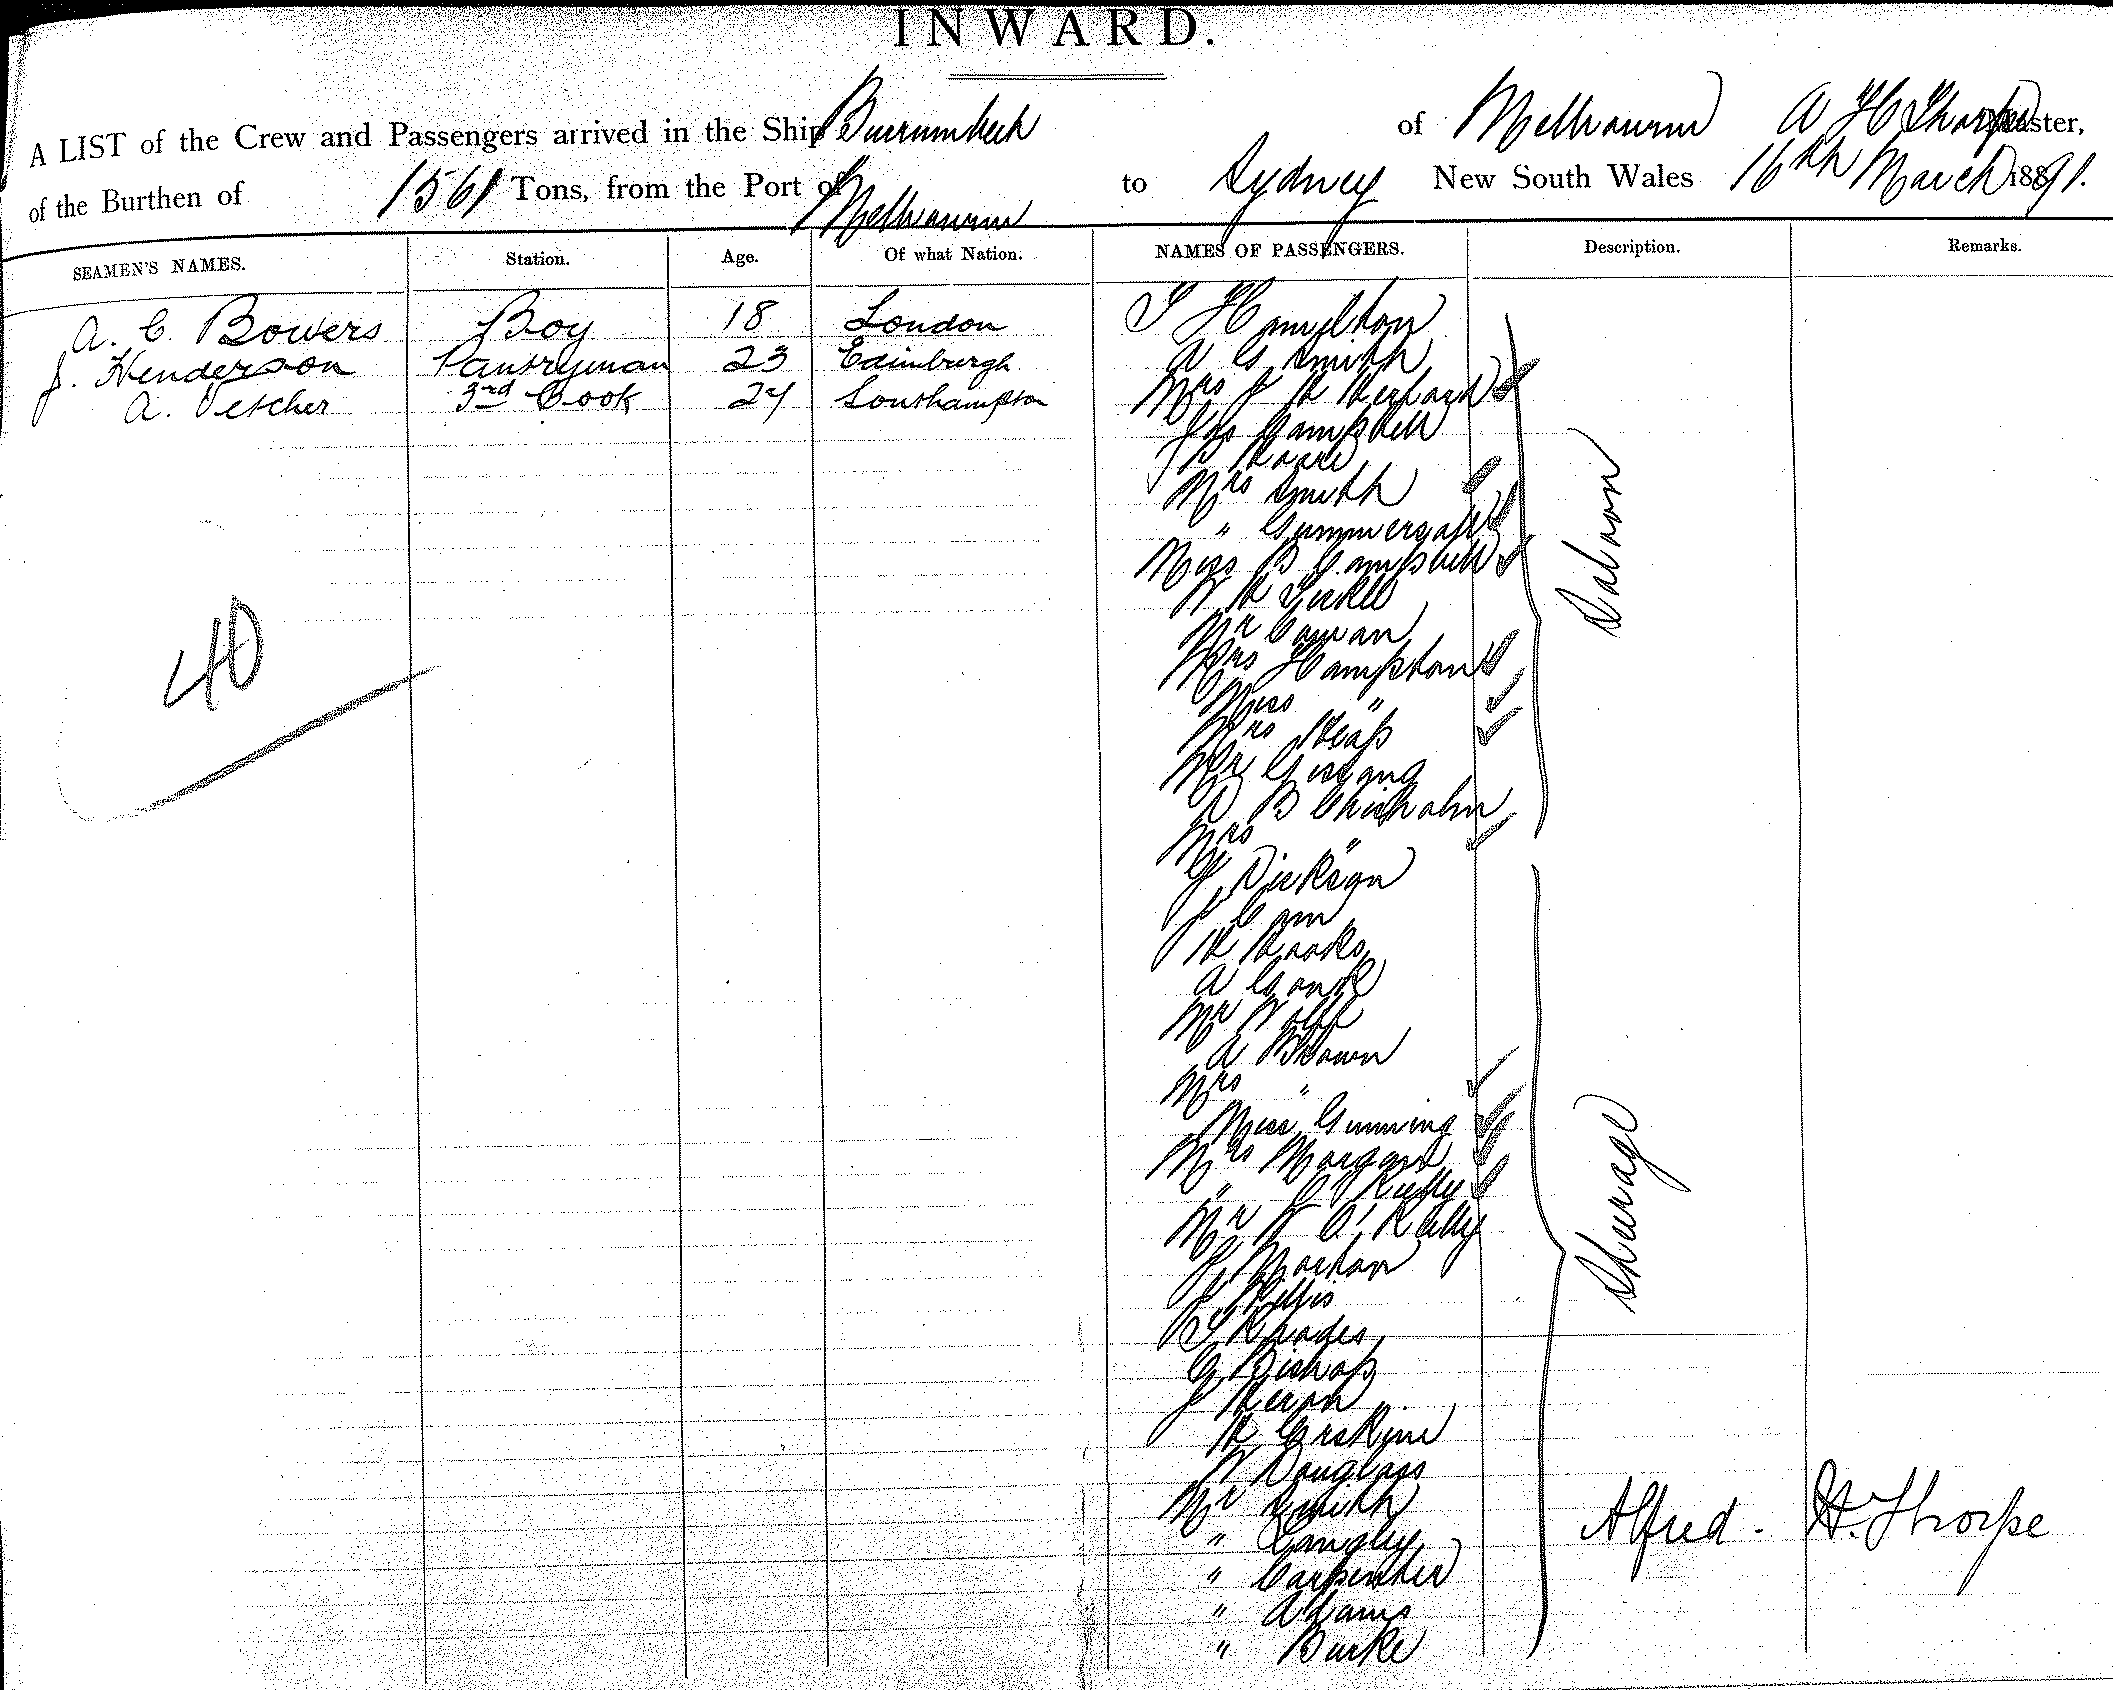 INWARD.
A LIST of the Crew and Passengers arrived in the Ship Burrumbeet of Melbourne A H Thorpe Master,
of the Burthen of 1561 Tons, from the Port of Melbourne to Sydney New South Wales 16th March 1891.
SEAMEN'S NAMES. Station. Age. Of what Nation. NAMES OF PASSENGERS. Description. Remarks.
A. C. Bowers Boy 18 London
J. Henderson Pantryman 23 Edinburgh
A. Petcher 3rd Cook 24 Southampton
T Hamilton
A G Smith
Mrs J H
Jas Campbell
B Moore
Mrs Smith
" Summersall
Miss B Campbell
W H
Mr Cowan
Mrs Hampton
Miss "
Mrs Heap
Mr
A B Chisholm
Mrs "
Saloon
40
J Dickson
J Cam
H Hooks
A
Mr Wolfe
A Brown
Mrs "
Miss Gunning
Mrs Morgan
"
Mr W O'Kelly
J Morton
J
T Rhodes
C Bishop
J Heron
H Erskine
W Douglass
Mr Smith
" Langley
" Carpenter
" Adams
" Burke
Steerage
Alfred. H. Thorpe